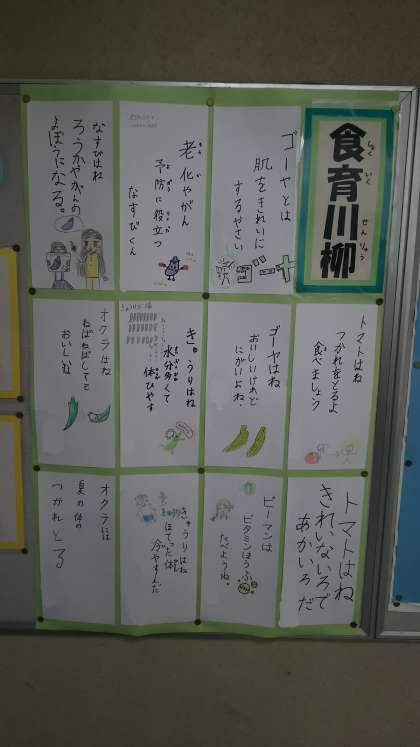 食育川柳
しょく いく せんりゅう
ゴーヤとは
肌をきれいに
するやさい
ゴーヤ
老化やがん
予防に役立つ
なすびくん
なすびはね
ろうかやがんの
よぼうになる。
トマトはね
つかれをとるよ
食べましょう
ゴーヤはね
おいしいけれど
にがいよね。
きゅうりはね
水分多くて
体ひやす
オクラはね
ねばねばしてて
おいしいね
トマトはね
きれいないろで
あかいろだ
ピーマンは
ビタミンほうふ
だったようね。
きゅうりはね
ほてった体
冷やすんだ
オクラには
夏の体の
つかれとる